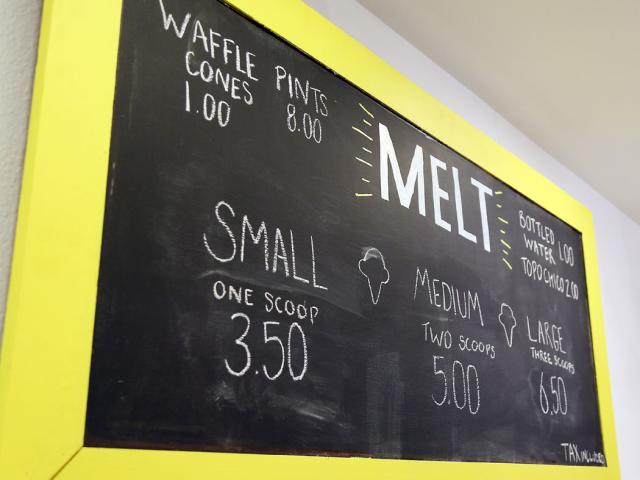 WAFFLE
CONES
1.00
PINTS
8.00
MELT
BOTTLED
WATER 1.00
TOPO CHICO 2.00
SMALL
ONE SCOOP
3.50
MEDIUM
TWO SCOOPS
5.00
LARGE
THREE SCOOPS
6.50
TAX INCLUDED